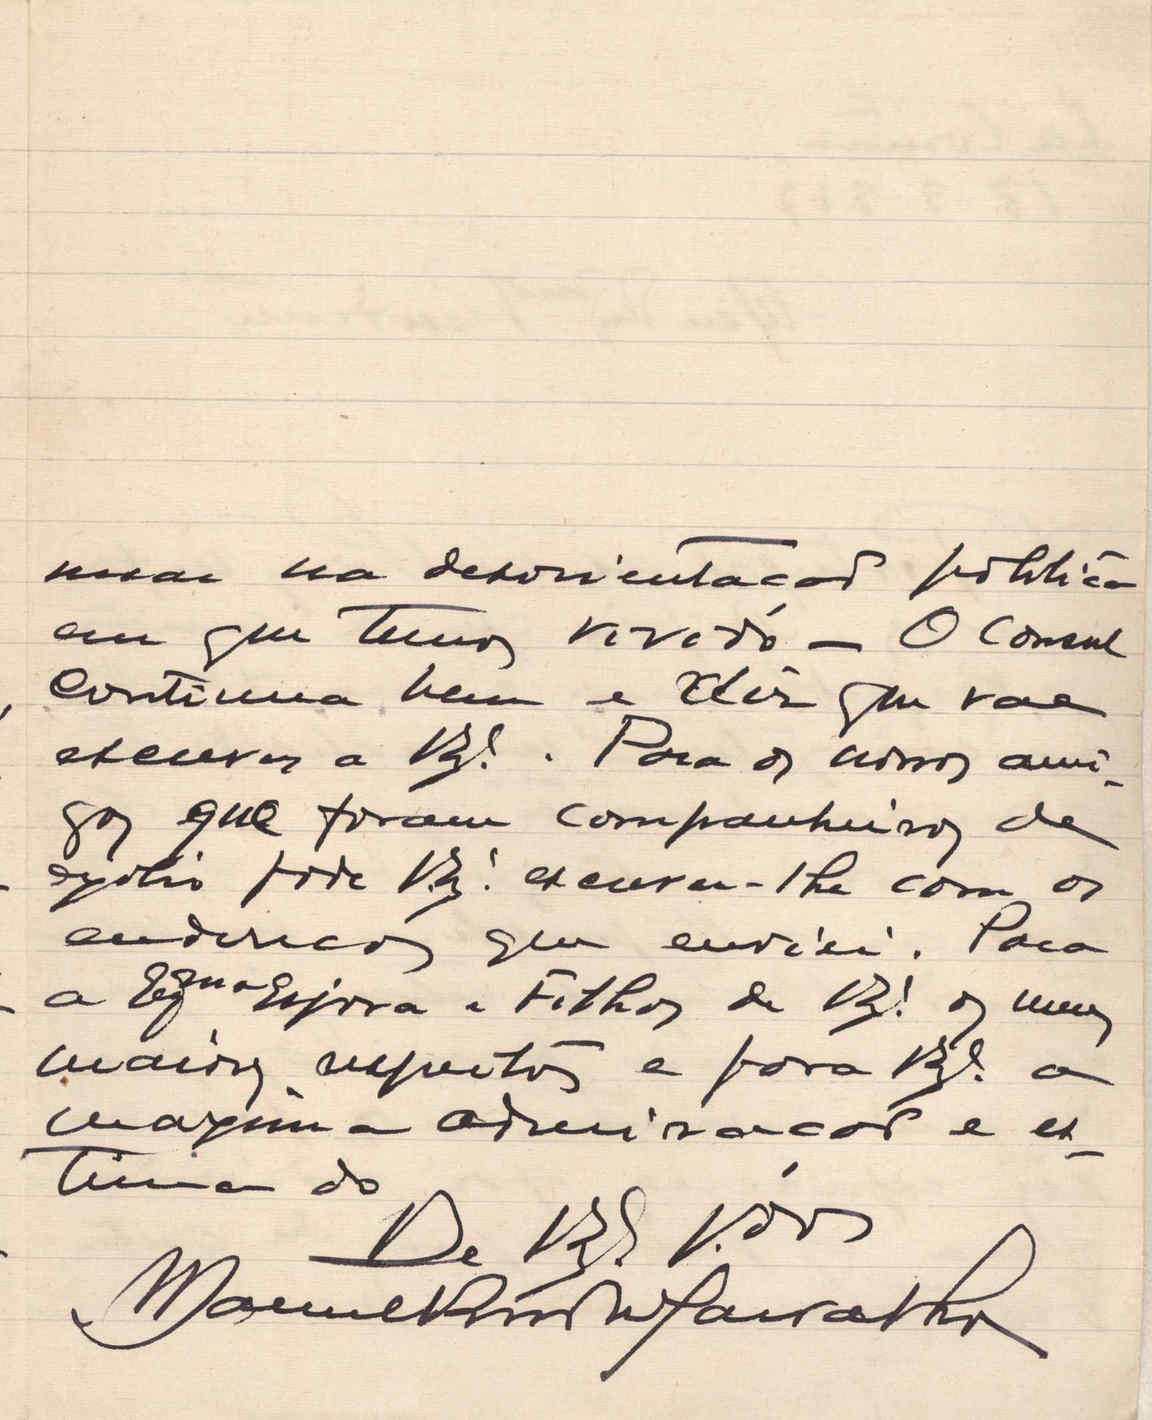 na desorientação politica
em que temos vivido — O Consul
continua bem e diz que vae
escrever a V. Exª. Para os nossos ami-
gos que foram companheiros de
exilio pode V. Exª. escrever-lhe com os
endereços que enviei. Para
a Exma Esposa e Filhos de V. Exª. os meus
maiores respeitos e para V. Exª. a
maxima admiração e es-
tima do
De V. Exª.
Manuel Carvalho